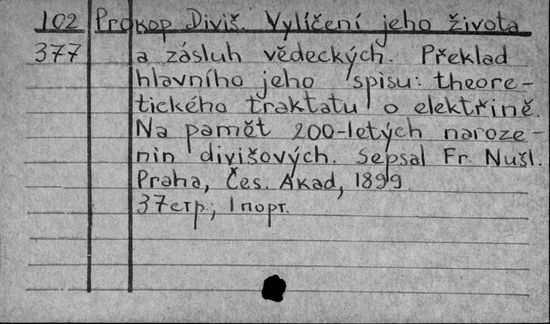 102 Prokop Diviš. Vylíčení jeho života
377 a zásluh vědeckých. Překlad
hlavního jeho spisu: theore-
tického traktatu o elektřině.
Na pamět 200-letých naroze-
nin divišových. Sepsal Fr. Nušl.
Praha, Čes. Akad, 1899.
37стр; 1 порт.